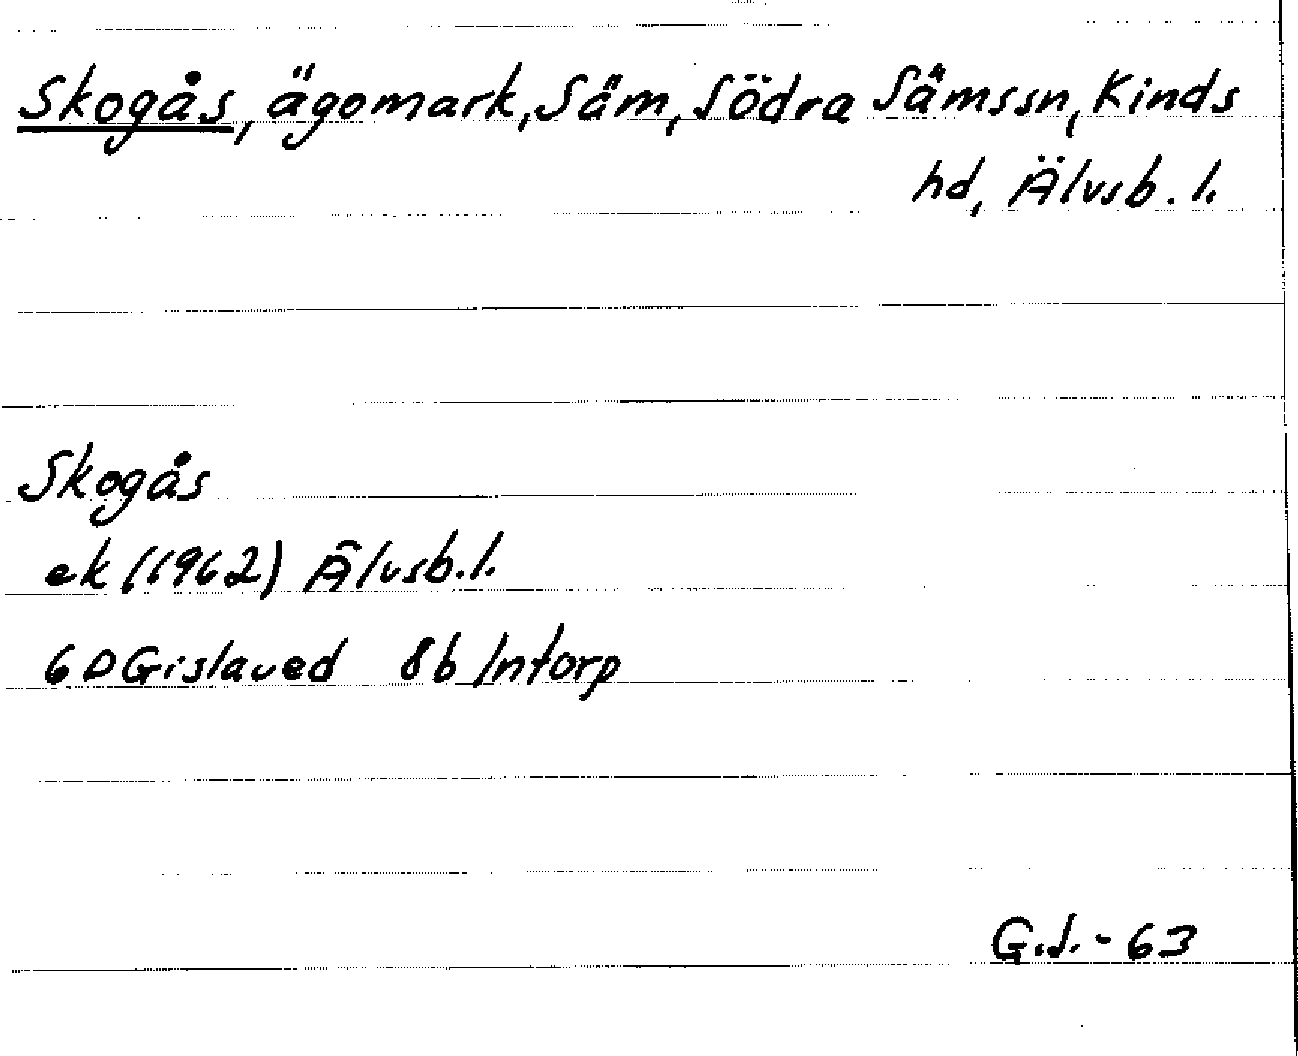 Skogås, ägomark, Säm, Södra Såmssn, Kinds
hd, Älvsb. l.
Skogås
ek (1962) Älvsb. l.
6D Gislaved 8b Intorp
G.S. - 63